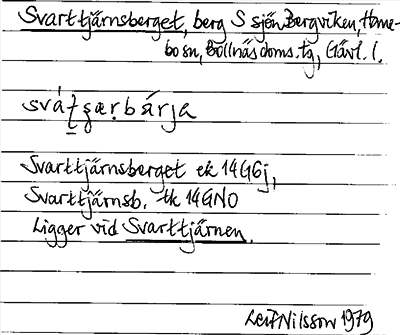 Svarttjärnsberget, berg S sjön Bergviken, Homo-
bo sn, Bollnäs doms. tg, Gävl. l.
Svarttjärnsberget ek 14G6j,
Svarttjärnsb. tk 14GNO
Ligger vid Svarttjärnen.
Leif Nilsson 1979